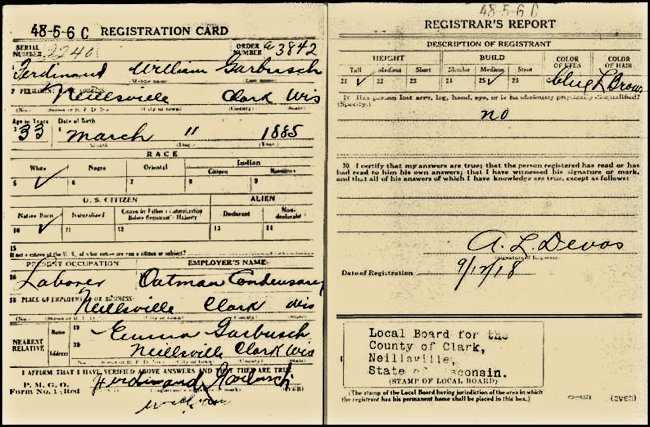 48-5-6 C REGISTRATION CARD
SERIAL NUMBER 2240 ORDER NUMBER A 3842
1 Ferdinand William Garbusch
2 PERMANENT HOME ADDRESS
Neillsville Clark Wis
Age in Years Date of Birth
3 33 4 March 11 1885
RACE
White Negro Oriental Indian
Citizen Noncitizen
5 ✓ 6 7 8 9
U. S. CITIZEN ALIEN
Native Born Naturalized Citizen by Father's Naturalization Before Registrant's Majority Declarant Non-declarant
10 ✓ 11 12 13 14
15
If not a citizen of the U. S., of what nation are you a citizen or subject?
PRESENT OCCUPATION EMPLOYER'S NAME
16 Laborer Oatman Condensary
18 PLACE OF EMPLOYMENT OR BUSINESS
Neillsville Clark Wis
NEAREST RELATIVE
Name 19 Emma Garbusch
Address 20 Neillsville Clark Wis
I AFFIRM THAT I HAVE VERIFIED ABOVE ANSWERS AND THAT THEY ARE TRUE
P. M. G. O.
Form No. 1 (Red) Ferdinand Garbusch (OVER)
48-5-6 C
REGISTRAR'S REPORT
DESCRIPTION OF REGISTRANT
HEIGHT BUILD COLOR OF EYES COLOR OF HAIR
Tall Medium Short Slender Medium Stout
21 ✓ 22 23 24 25 ✓ 26 27 Blue 28 L Brown
29 Has person lost arm, leg, hand, eye, or is he obviously physically disqualified?
(Specify.)
no
30 I certify that my answers are true; that the person registered has read or has
had read to him his own answers; that I have witnessed his signature or mark,
and that all of his answers of which I have knowledge are true, except as follows:
A. L. Devos
Date of Registration 9/12/18
Local Board for the
County of Clark,
Neillsville,
State of Wisconsin.
(STAMP OF LOCAL BOARD)
(The stamp of the Local Board having jurisdiction of the area in which
the registrant has his permanent home shall be placed in this box.)
(OVER)